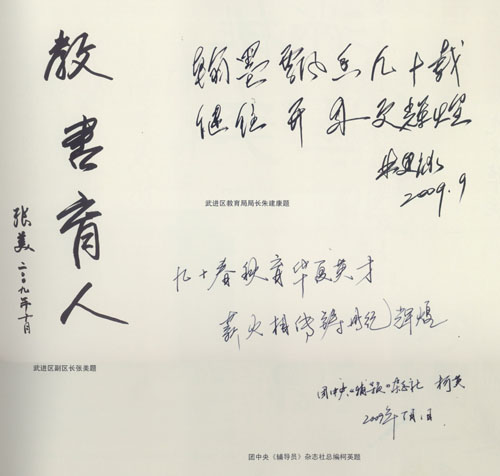 教書育人
张美 二〇〇九年十月
武进区副区长张美题
翰墨飘香九十载
继往开来更辉煌
朱建康
2009.9
武进区教育局局长朱建康题
九十春秋育华夏英才
薪火相传世纪辉煌
团中央《辅导员》杂志社 柯英
2009年
团中央《辅导员》杂志社总编柯英题